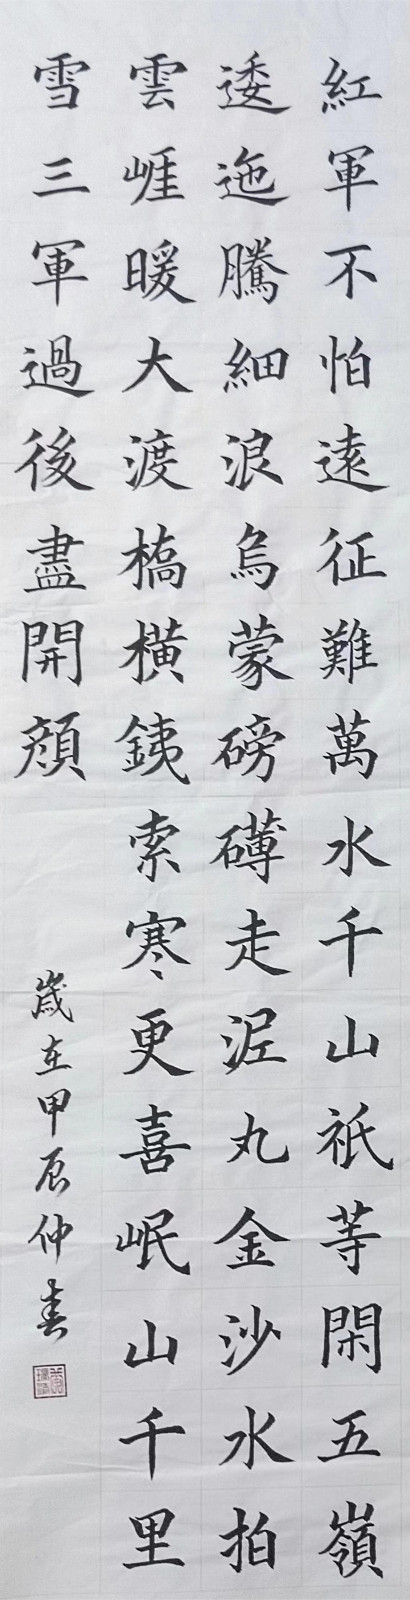 紅軍不怕遠征難萬水千山祇等閑五嶺
逶迤騰細浪烏蒙磅礴走泥丸金沙水拍
雲崖暖大渡橋橫鐵索寒更喜岷山千里
雪三軍過後盡開顔
歲在甲辰仲春